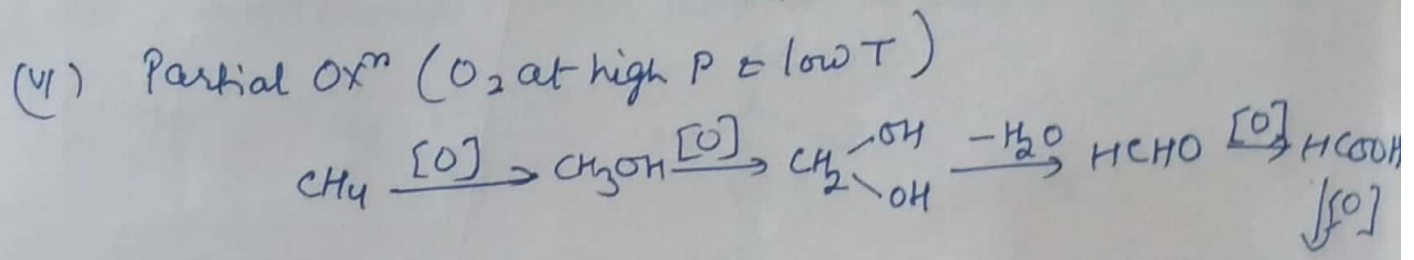 (VI) Partial Oxⁿ (O₂ at high P & low T)
CH₄ [O]→ CH₃OH [O]→ CH₂<OH OH −H₂O→ HCHO [O]→ HCOOH
↓[O]